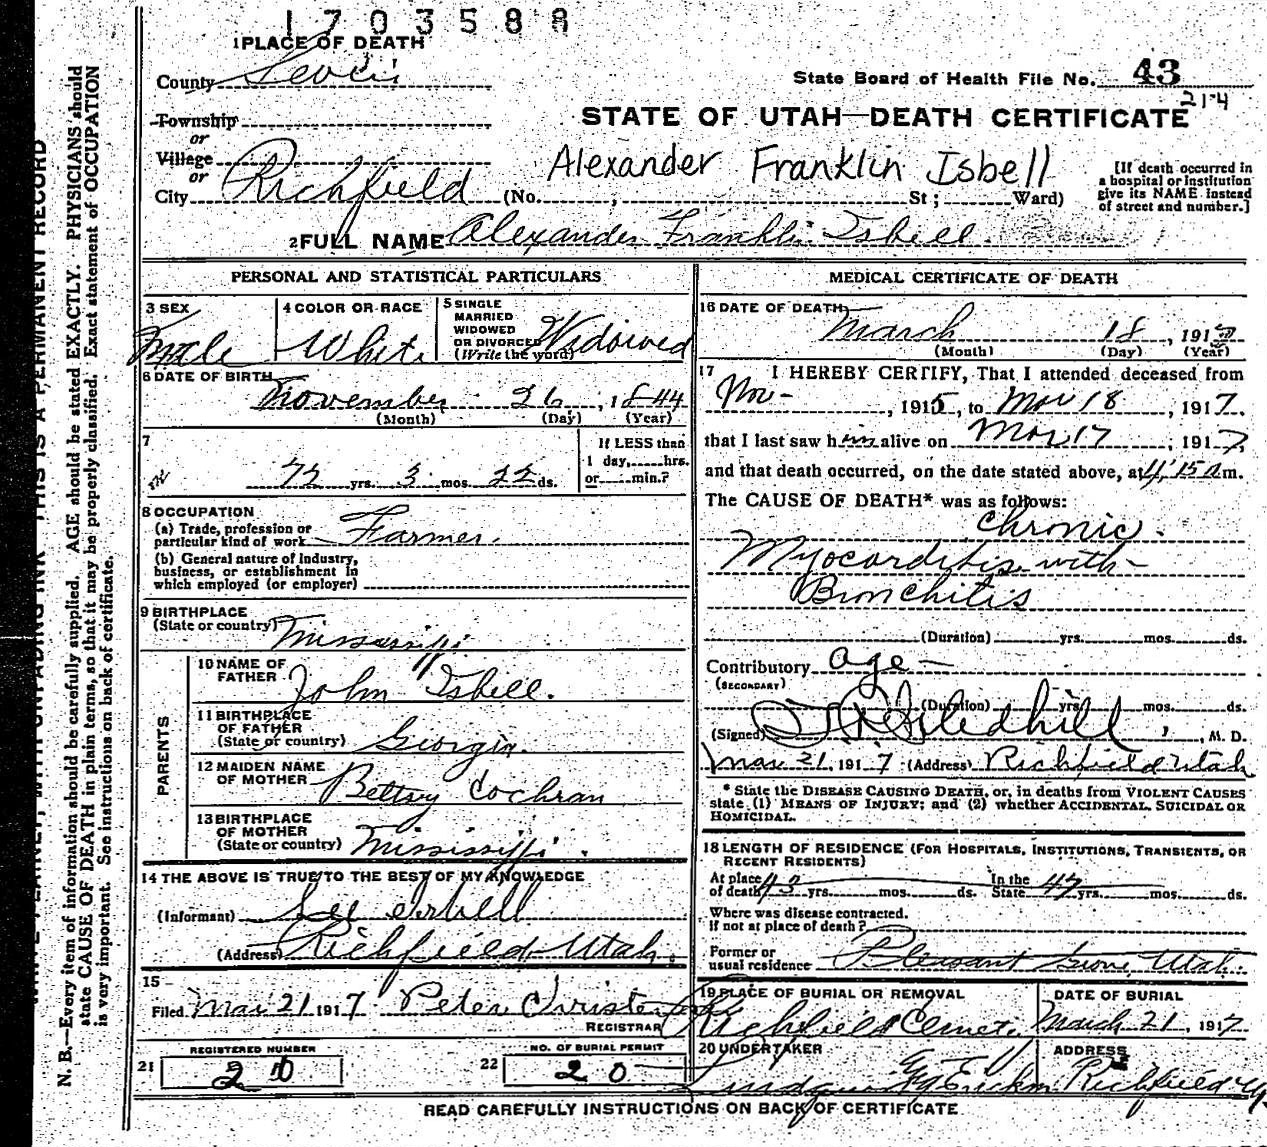 1703588
1 PLACE OF DEATH
County Sevier
State Board of Health File No. 43
214
Township
or
Village
or
City Richfield (No. ; St ; Ward)
STATE OF UTAH—DEATH CERTIFICATE
Alexander Franklin Isbell
[If death occurred in
a hospital or institution
give its NAME instead
of street and number.]
2 FULL NAME Alexander Franklin Isbell.
PERSONAL AND STATISTICAL PARTICULARS
3 SEX
Male
4 COLOR OR RACE
White
5 SINGLE
MARRIED
WIDOWED
OR DIVORCED
(Write the word)
Widowed
6 DATE OF BIRTH
November 26, 1844
(Month) (Day) (Year)
7
72 yrs. 3 mos. 22 ds.
If LESS than
1 day, hrs.
or min.?
8 OCCUPATION
(a) Trade, profession or
particular kind of work Farmer.
(b) General nature of industry,
business, or establishment in
which employed (or employer)
9 BIRTHPLACE
(State or country) Mississippi
PARENTS
10 NAME OF
FATHER John Isbell.
11 BIRTHPLACE
OF FATHER
(State or country) Georgia.
12 MAIDEN NAME
OF MOTHER Bettsy Cochran
13 BIRTHPLACE
OF MOTHER
(State or country) Mississippi.
14 THE ABOVE IS TRUE TO THE BEST OF MY KNOWLEDGE
(Informant) Lee Isbell
(Address) Richfield Utah.
15
Filed Mar 21 1917. Peter
REGISTRAR
REGISTERED NUMBER
21 20
NO. OF BURIAL PERMIT
22 20
MEDICAL CERTIFICATE OF DEATH
16 DATE OF DEATH
March 18, 1917
(Month) (Day) (Year)
17 I HEREBY CERTIFY, That I attended deceased from
Nov- , 1915, to Mar 18, 1917.
that I last saw him alive on Mar 17, 1917,
and that death occurred, on the date stated above, at 4,15 a m.
The CAUSE OF DEATH* was as follows:
Chronic.
Myocarditis with-
Bronchitis
(Duration) yrs. mos. ds.
Contributory age-
(SECONDARY)
(Duration) yrs. mos. ds.
(Signed) Gledhill, M. D.
Mar 21, 1917 (Address) Richfield Utah
* State the DISEASE CAUSING DEATH, or, in deaths from VIOLENT CAUSES
state (1) MEANS OF INJURY; and (2) whether ACCIDENTAL, SUICIDAL OR
HOMICIDAL.
18 LENGTH OF RESIDENCE (FOR HOSPITALS, INSTITUTIONS, TRANSIENTS, OR
RECENT RESIDENTS)
At place
of death 43 yrs. mos. ds. In the
State 47 yrs. mos. ds.
Where was disease contracted.
If not at place of death?
Former or
usual residence Pleasant Grove, Utah.
19 PLACE OF BURIAL OR REMOVAL
Richfield Cemet.
DATE OF BURIAL
March 21, 1917
20 UNDERTAKER
ADDRESS
Richfield
READ CAREFULLY INSTRUCTIONS ON BACK OF CERTIFICATE
THIS IS A PERMANENT RECORD
N. B.—Every item of information should be carefully supplied. AGE should be stated EXACTLY. PHYSICIANS should
state CAUSE OF DEATH in plain terms, so that it may be properly classified. Exact statement of OCCUPATION
is very important. See instructions on back of certificate.